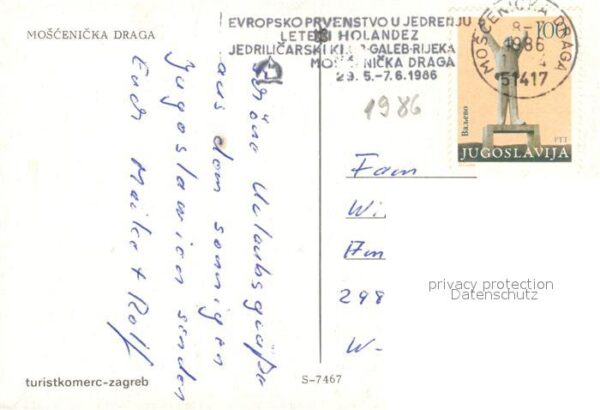 MOŠĆENIČKA DRAGA
EVROPSKO PRVENSTVO U JEDRENJU
LETEĆI HOLANDEZ
JEDRILIČARSKI KLUB GALEB-RIJEKA
MOŠĆENIČKA DRAGA
29. 5.-7. 6. 1986
MOŠĆENIČKA DRAGA
1986
51417
100
Ваљево
PTT
JUGOSLAVIJA
1986
Schöne Urlaubsgrüße
aus dem sonnigen
Jugoslawien senden
Euch Maike + Rolf
Fam
Wi
Am
298
W-
privacy protection
Datenschutz
turistkomerc-zagreb
S-7467